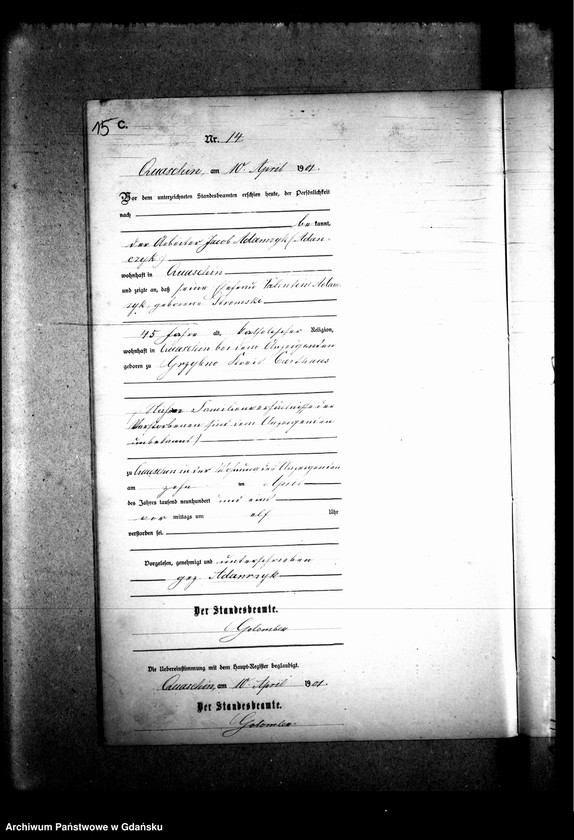 15 C.
Nr. 14
Quaschin, am 10. April 1901.
Vor dem unterzeichneten Standesbeamten erschien heute, der Persönlichkeit
nach
be kannt,
der Arbeiter Jacob Adamzyk (Adam-
czyk)
wohnhaft in Quaschin
und zeigte an, daß seine Ehefrau
geborene
45 Jahre alt, katholischer Religion,
wohnhaft in Quaschin bei dem Anzeigenden
geboren zu Grzybno Kreis Carthaus
(Nähere Familienverhältnisse der
Verstorbenen sind dem Anzeigenden
unbekannt)
zu Quaschin in der Wohnung des Anzeigenden
am zehn ten April
des Jahres tausend neunhundert und eins
vor mittags um elf Uhr
verstorben sei.
Vorgelesen, genehmigt und unterschrieben
gez. Adamczyk
Der Standesbeamte.
Die Uebereinstimmung mit dem Haupt-Register beglaubigt.
Quaschin, am 10. April 1901.
Der Standesbeamte.
Archiwum Państwowe w Gdańsku